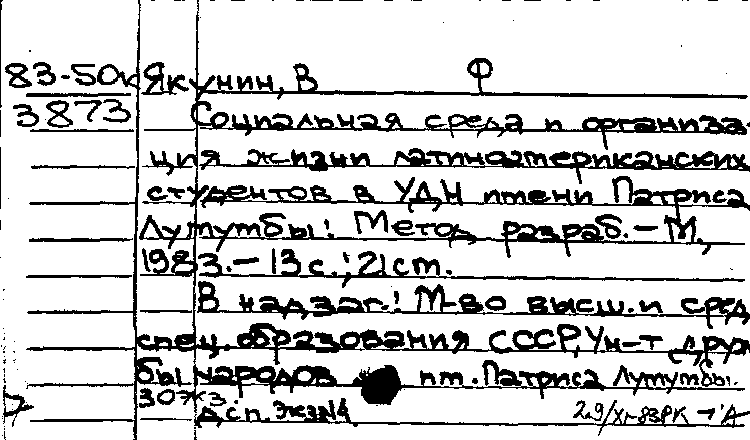 83-50к Якунин, В Ф
3873 Социальная среда и организа-
ция жизни латиноамериканских
студентов в УДН имени Патриса
Лумумбы: Метод. разраб. – М.,
1983. – 13 с.; 21 см.
В надзаг.: М-во высш. и сред.
спец. образования СССР, Ун-т друж
бы народов им. Патриса Лумумбы.
ДСП. Экз №4